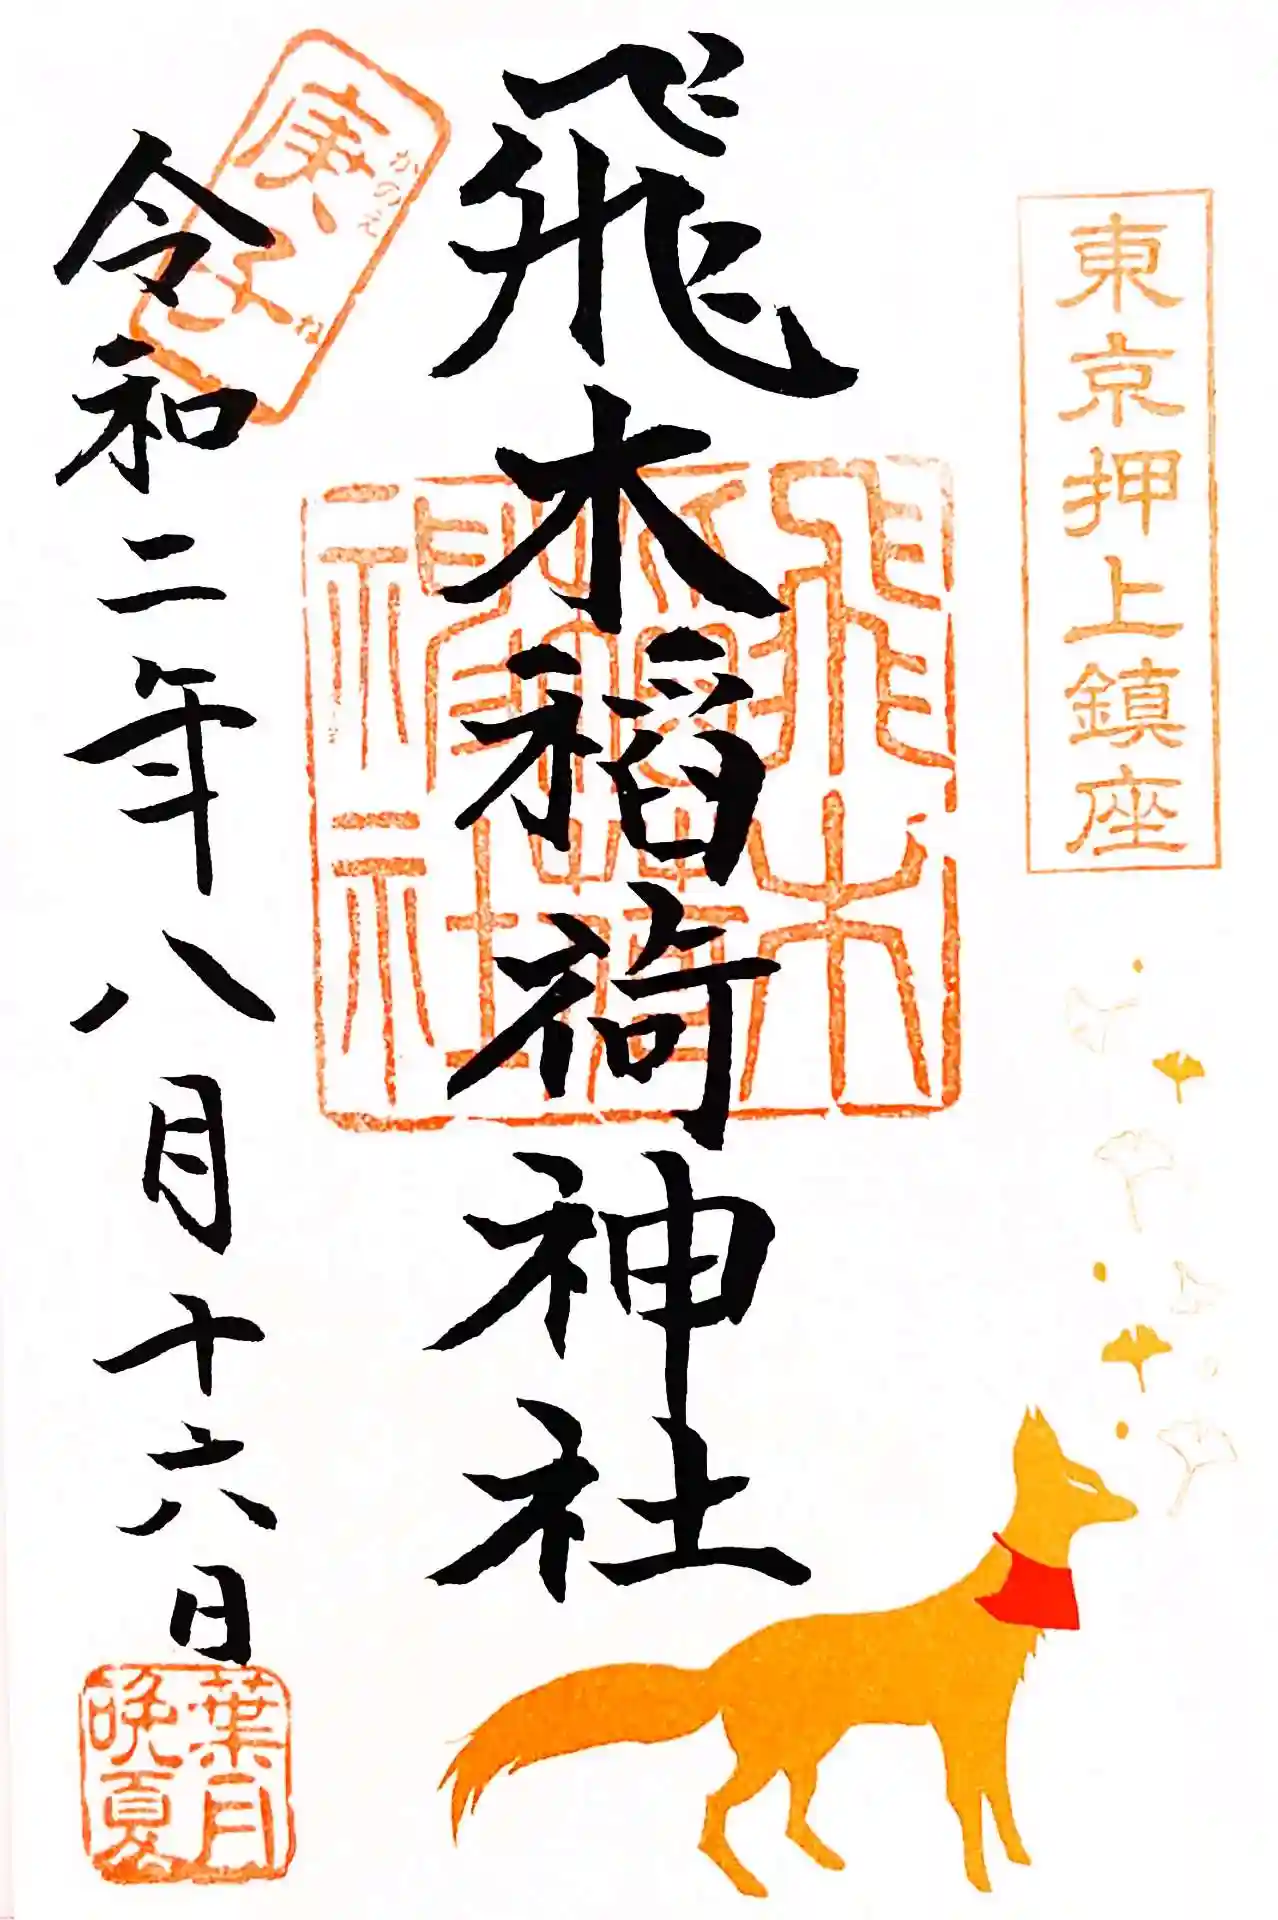 東京押上鎮座
飛木稲荷神社
飛木
稲荷
神社
庚子
かのえ
ね
令和二年八月十六日
葉月
晩夏